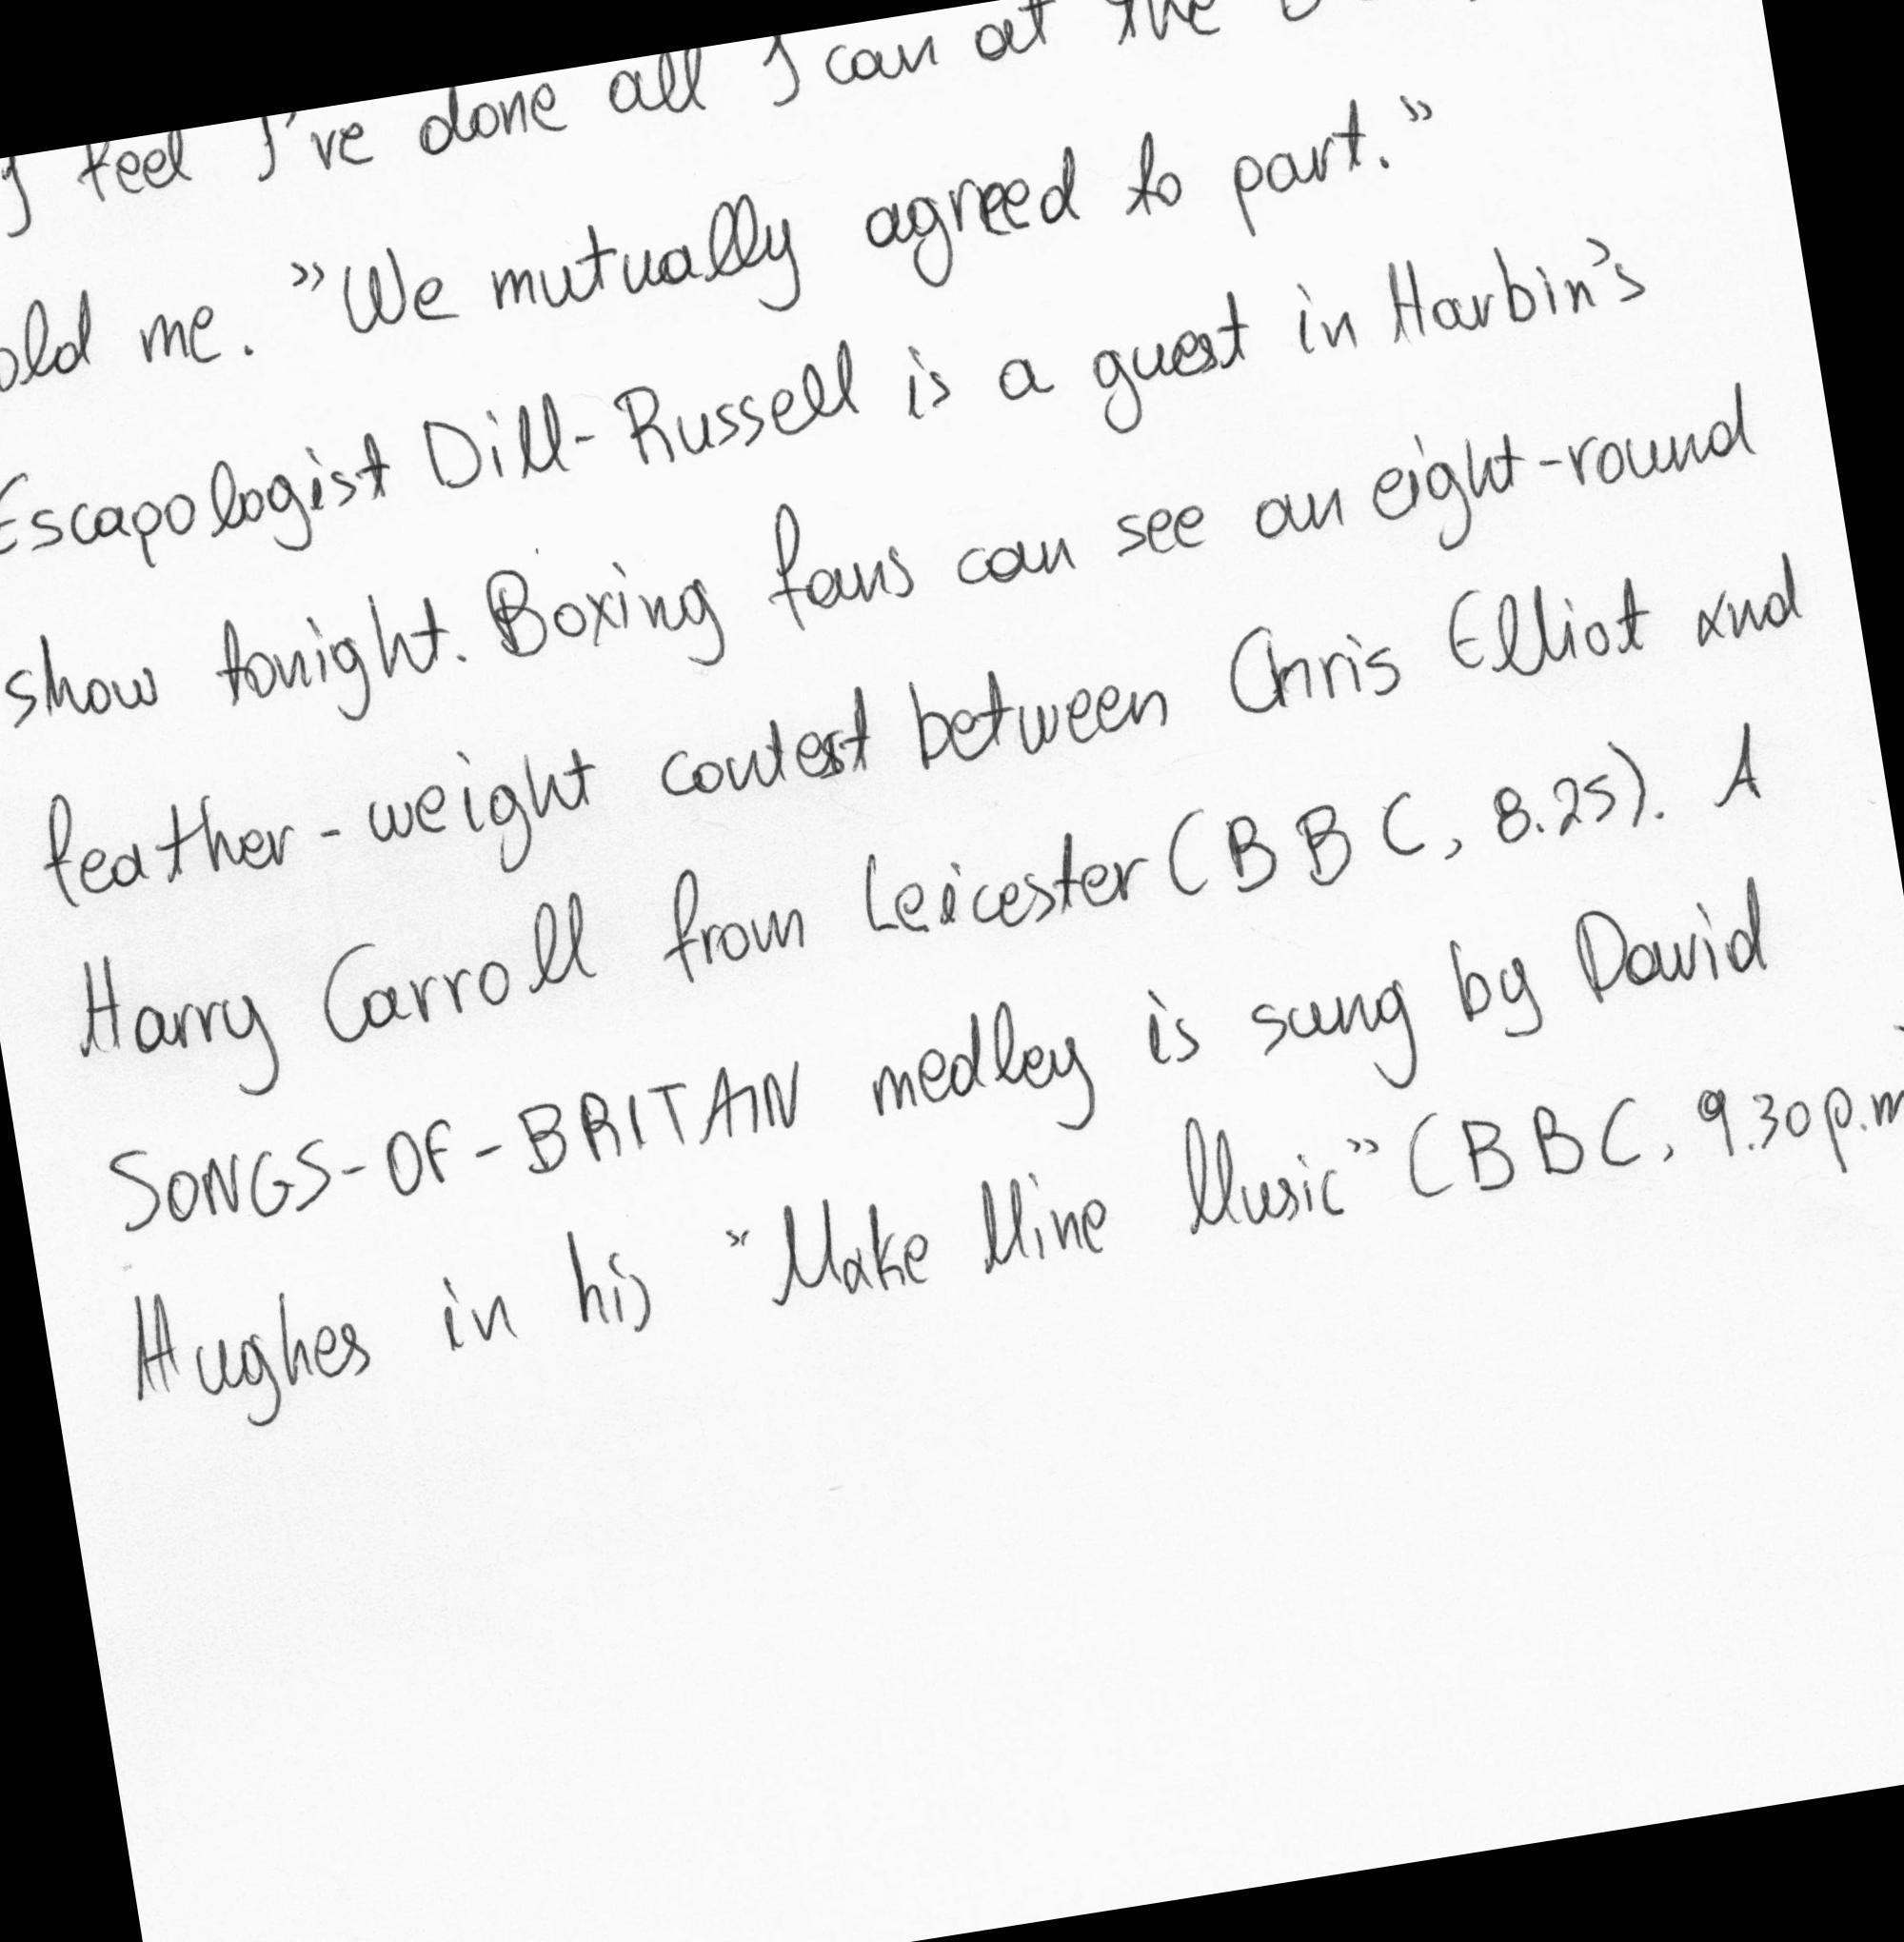 I feel I've done all I can at the
old me. "We mutually agreed to part."
Escapologist Dill-Russell is a guest in Harbin's
show tonight. Boxing fans can see an eight-round
feather-weight contest between Chris Elliot and
Harry Carroll from Leicester (BBC, 8.25). A
SONGS-OF-BRITAIN medley is sung by David
Hughes in his "Make Mine Music" (BBC, 9.30p.m